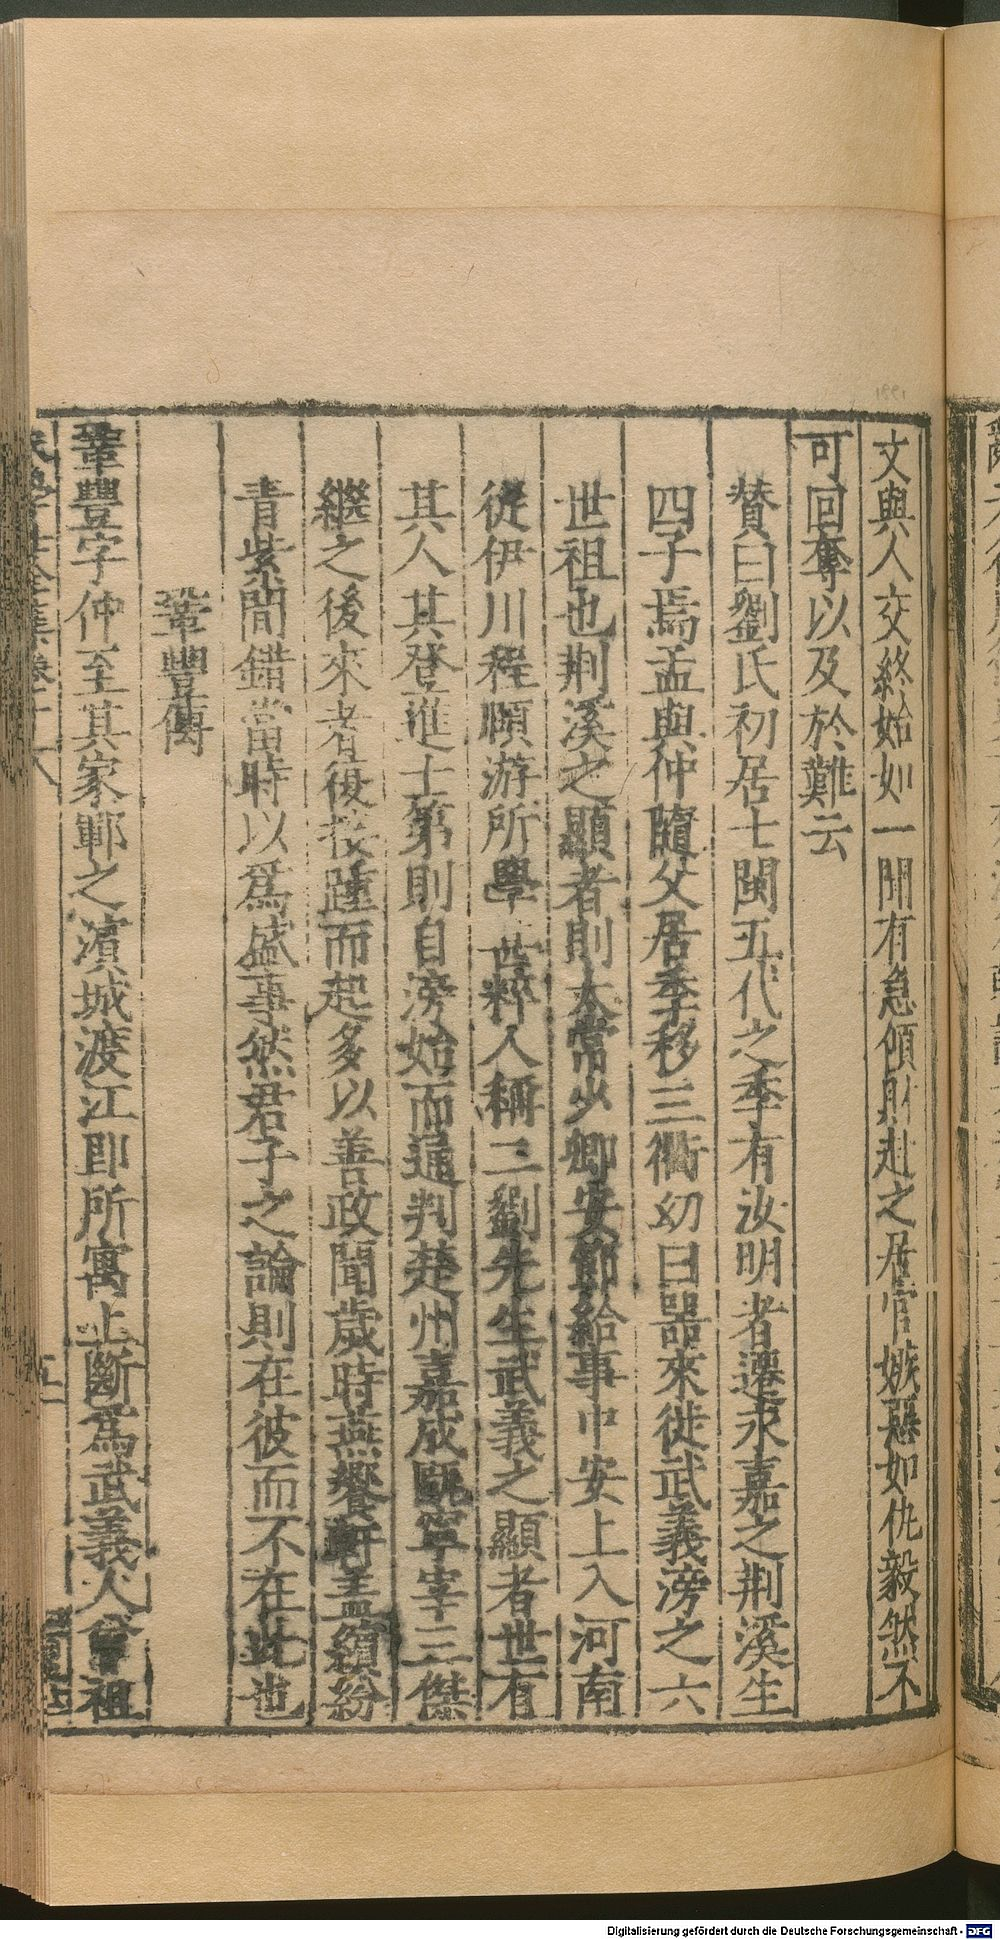 文與人交終始如一聞有急傾財赴之居官嫉惡如仇毅然不
可回奪以及於難云
贊曰劉氏初居士閩五代之季有汝明者遷永嘉之荆溪生
四子焉孟與仲隨父居季移三衢幼曰噐來徙武義滂之六
世祖也荆溪之顯者則太常少卿安節給事中安上入河南
從伊川程頥游所學 粹人稱二劉先生武義之顯者世有
其人其登進士第則自滂始而通判楚州嘉成甌寧宰三傑
繼之後來者後接踵而起多以善政聞歲時燕饗軒盖繽紛
青紫間錯當時以爲盛事然君子之論則在彼而不在此也
鞏豐傳
鞏豐字仲至其家鄆之濵城渡江即所寓土斷爲武義人曾祖
Digitalisierung gefördert durch die Deutsche Forschungsgemeinschaft - DFG